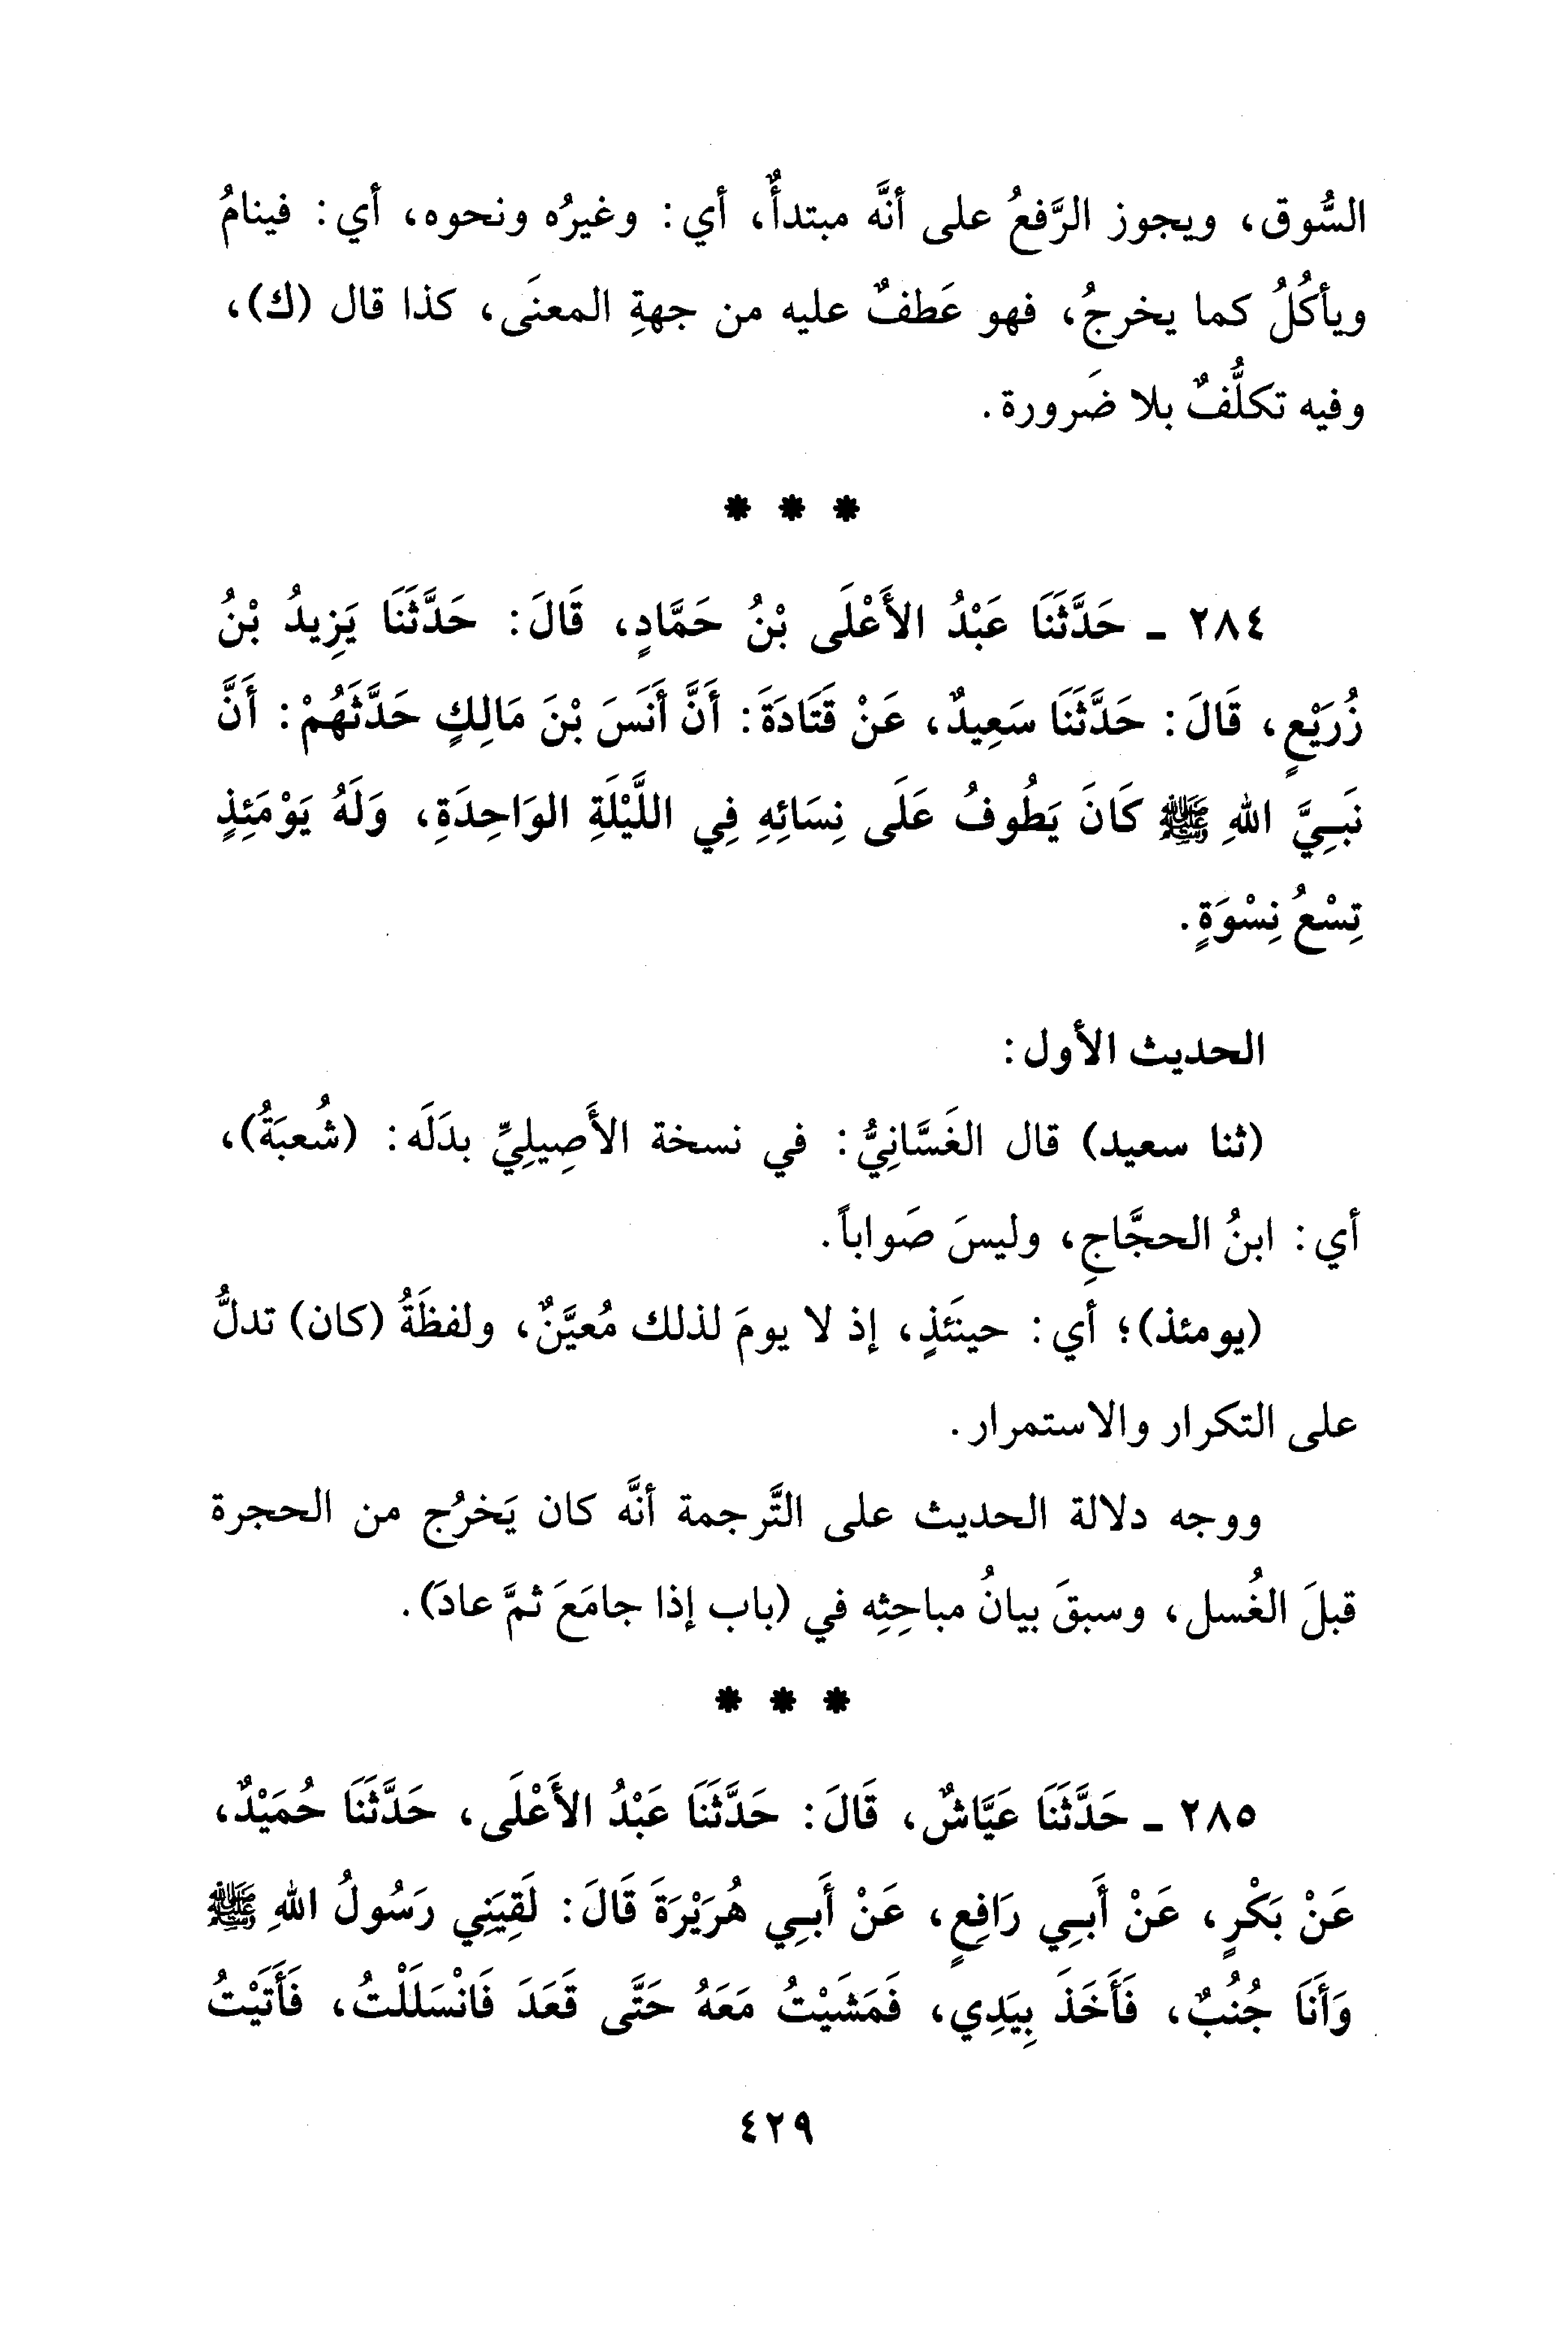 السُّوق، ويجوز الرَّفعُ على أنَّه مبتدأٌ، أي: وغيرُه ونحوه، أي: فينامُ
ويأكُلُ كما يخرجُ، فهو عَطفٌ عليه من جهةِ المعنَى، كذا قال (ك)،
وفيه تكلُّفٌ بلا ضَرورة.
* * *
٢٨٤ ـ حَدَّثَنَا عَبْدُ الأَعْلَى بْنُ حَمَّادٍ، قَالَ: حَدَّثَنَا يَزِيدُ بْنُ
زُرَيْعٍ، قَالَ: حَدَّثَنَا سَعِيدٌ، عَنْ قَتَادَةَ: أَنَّ أَنَسَ بْنَ مَالِكٍ حَدَّثَهُمْ: أَنَّ
نَبِيَّ اللهِ ﷺ كَانَ يَطُوفُ عَلَى نِسَائِهِ فِي اللَّيْلَةِ الوَاحِدَةِ، وَلَهُ يَوْمَئِذٍ
تِسْعُ نِسْوَةٍ.
الحديث الأول:
(ثنا سعيد) قال الغَسَّانِيُّ: في نسخة الأَصِيلِيِّ بدَلَه: (شُعبَةُ)،
أي: ابنُ الحجَّاجِ، وليسَ صَواباً.
(يومئذ)؛ أي: حينَئذٍ، إذ لا يومَ لذلك مُعيَّنٌ، ولفظَةُ (كان) تدلُّ
على التكرار والاستمرار.
ووجه دلالة الحديث على التَّرجمة أنَّه كان يَخرُج من الحجرة
قبلَ الغُسل، وسبقَ بيانُ مباحِثِه في (باب إذا جامَعَ ثمَّ عادَ).
* * *
٢٨٥ ـ حَدَّثَنَا عَيَّاشٌ، قَالَ: حَدَّثَنَا عَبْدُ الأَعْلَى، حَدَّثَنَا حُمَيْدٌ،
عَنْ بَكْرٍ، عَنْ أَبِي رَافِعٍ، عَنْ أَبِي هُرَيْرَةَ قَالَ: لَقِيَنِي رَسُولُ اللهِ ﷺ
وَأَنَا جُنُبٌ، فَأَخَذَ بِيَدِي، فَمَشَيْتُ مَعَهُ حَتَّى قَعَدَ فَانْسَلَلْتُ، فَأَتَيْتُ
٤٢٩